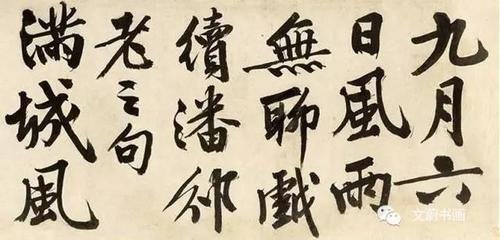 九月六
日風雨
無聊戲
續潘邠
老之句
滿城風
文蔚书画